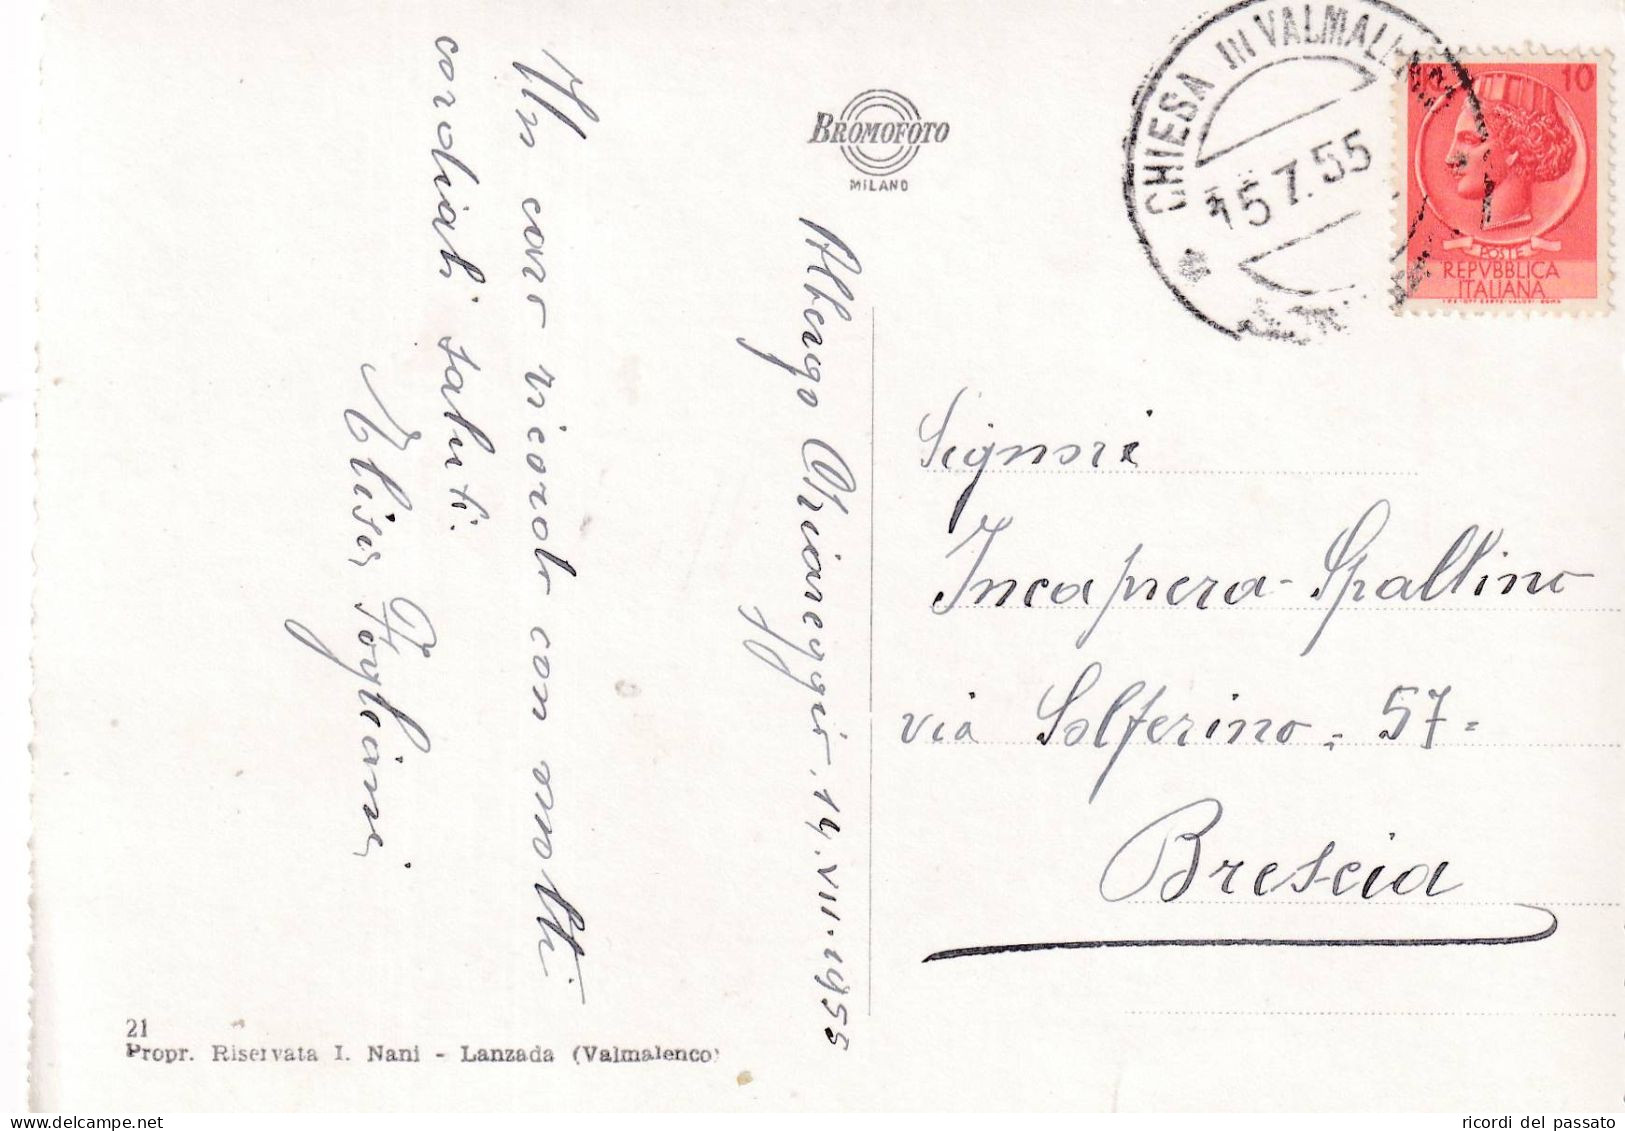 Albergo Chiareggio, 14.VII.1955
Un caro ricordo con molti
cordiali saluti.
Elisa Fogliani
BROMOFOTO
MILANO
CHIESA IN VALMALENCO
15.7.55
10
POSTE
REPVBBLICA
ITALIANA
Signori
Incapera-Spallino
via Solferino, 57=
Brescia
21
Propr. Riservata I. Nani - Lanzada (Valmalenco)
ricordi del passato